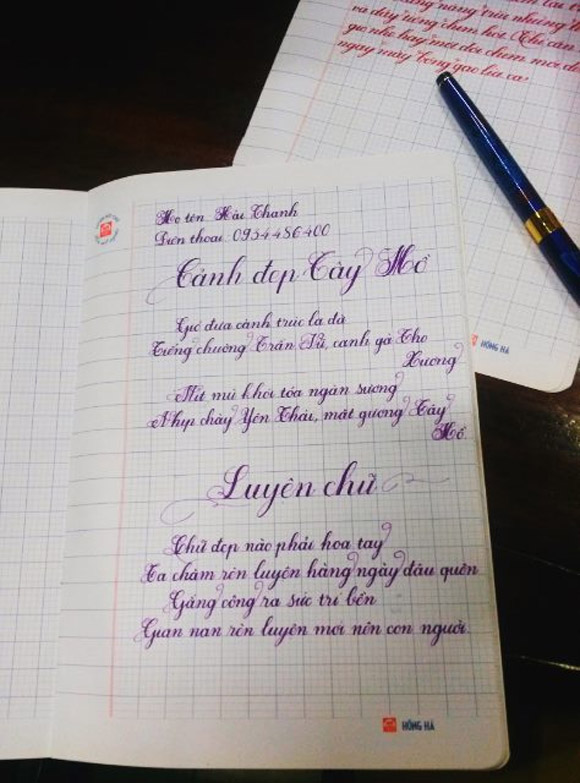 nắng trĩu những
và đầy tiếng chim hót
gió nhẹ hay mời đôi chim
ngày mây bông gạo lìa xa
Họ tên Hải Thanh
Điện thoại: 0934486400
Cảnh đẹp Tây Hồ
Gió đưa cành trúc la đà
Tiếng chuông Trấn Vũ, canh gà Thọ
Xương
Mịt mù khói tỏa ngàn sương
Nhịp chày Yên Thái, mặt gương Tây
Hồ.
Luyện chữ
Chữ đẹp nào phải hoa tay
Ta chăm rèn luyện hàng ngày đâu quên
Gắng công ra sức trí bền
Gian nan rèn luyện mới nên con người.
HỒNG HÀ
HỒNG HÀ